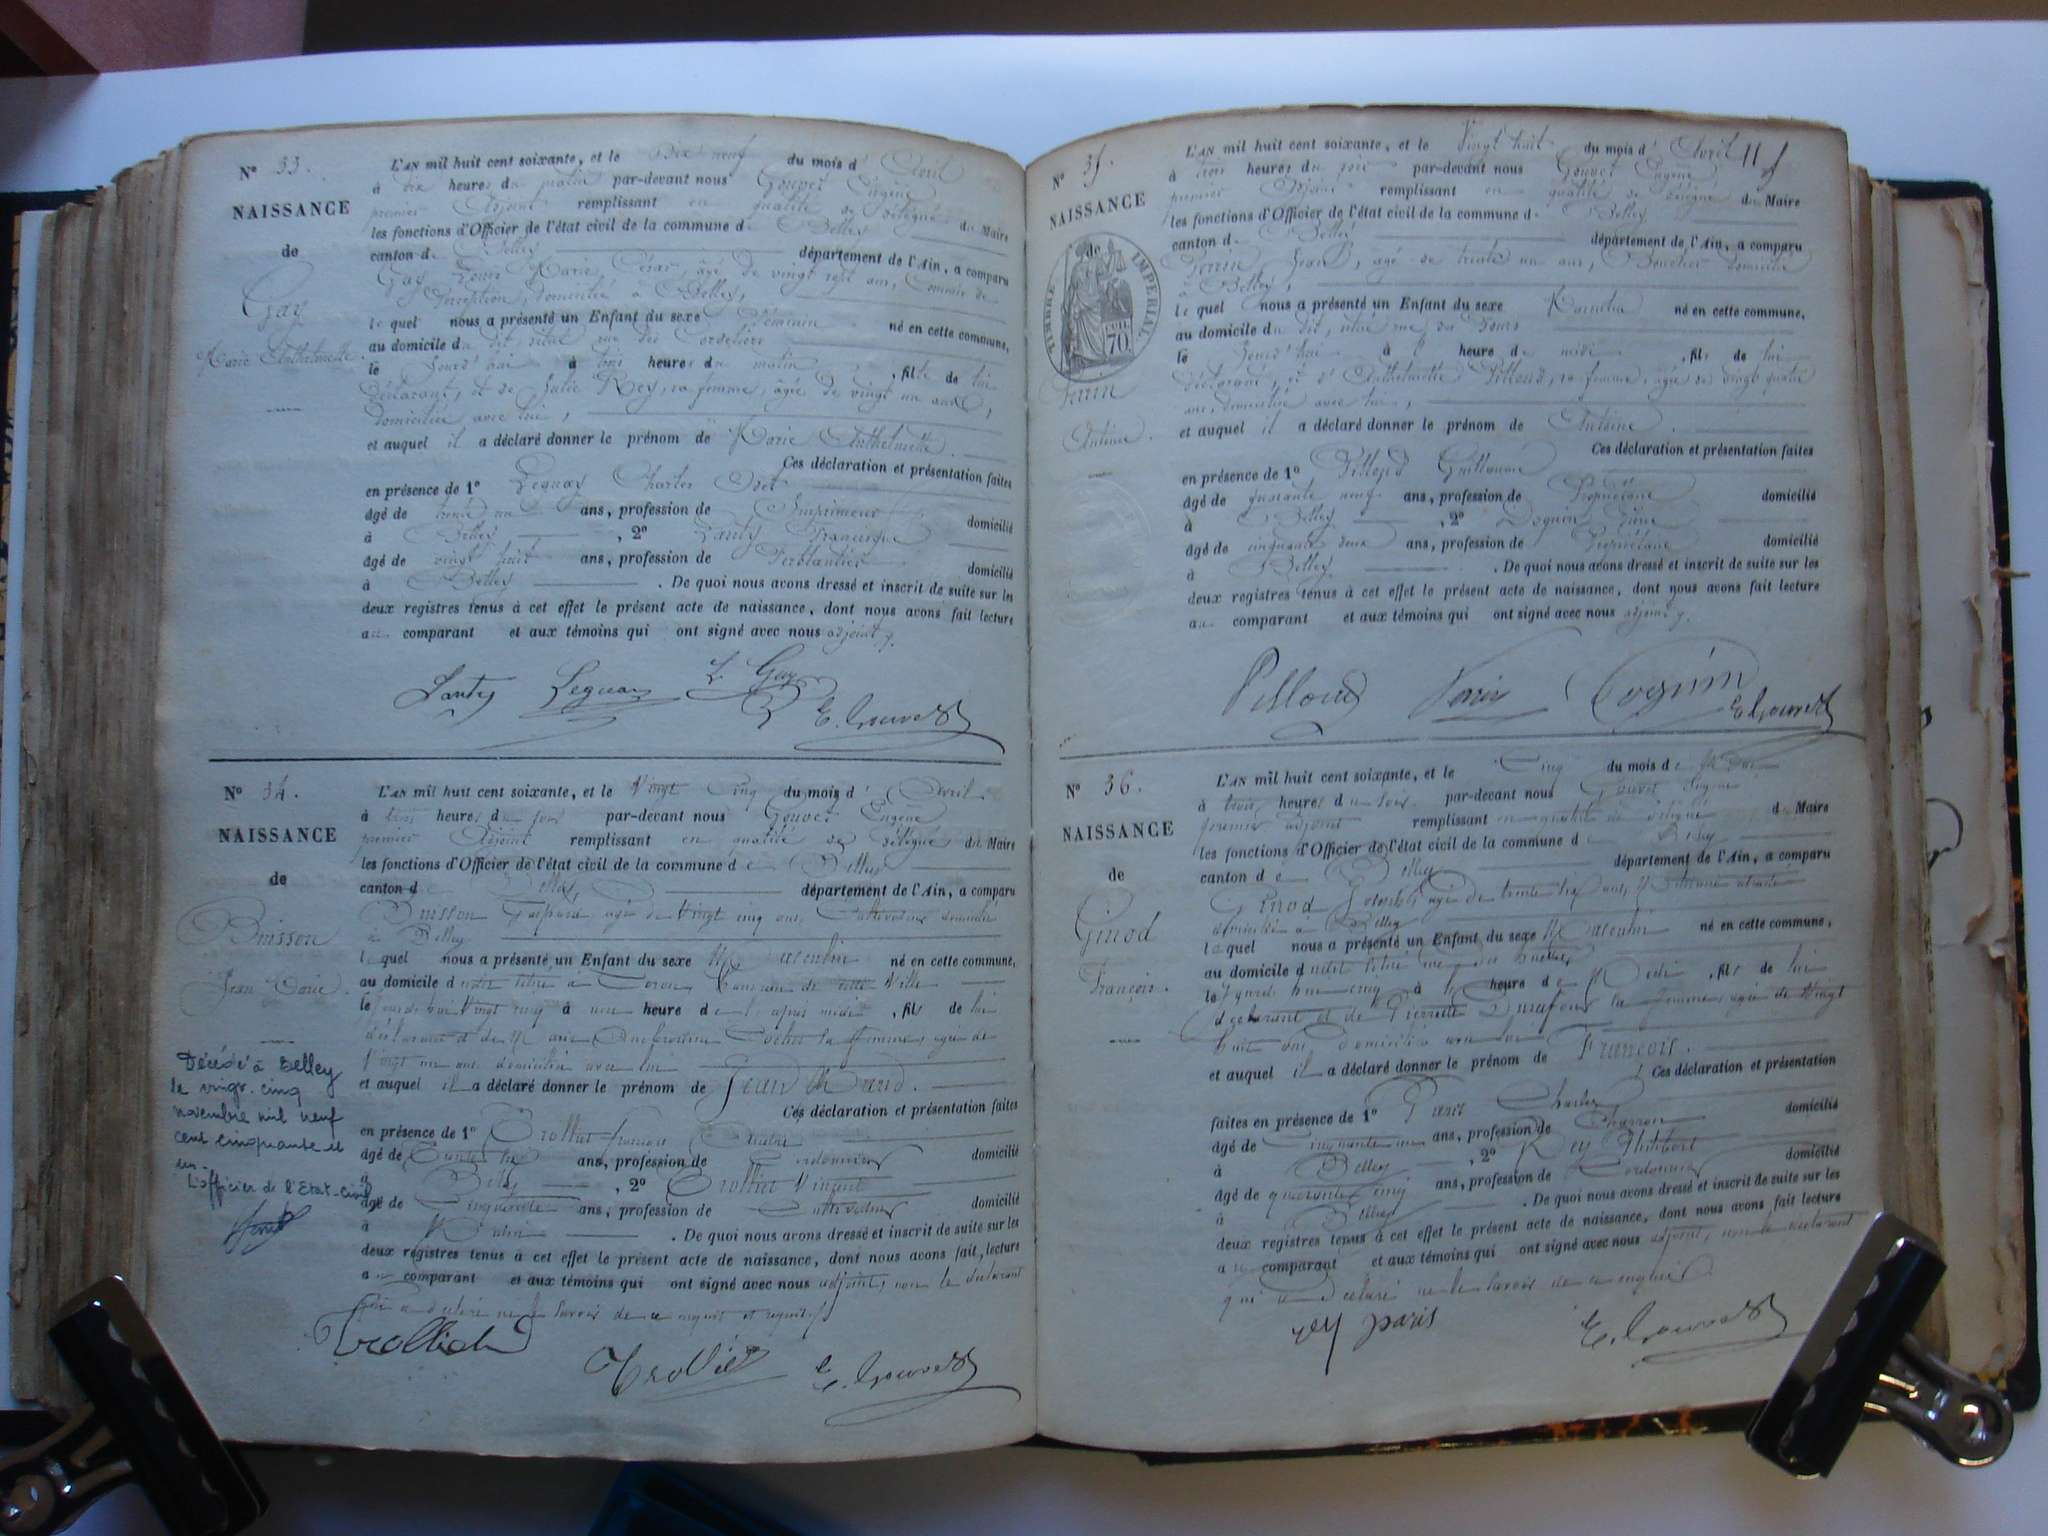 N° 33.
NAISSANCE
de
Gay
Marie Anthelmette.
L'AN mil huit cent soixante, et le Dix neuf du mois d' Avril
à dix heures du matin par-devant nous Gouvet Eugène
premier Adjoint remplissant en qualité de délégué du Maire
les fonctions d'Officier de l'état civil de la commune de Belley
canton de Belley département de l'Ain, a comparu
Gay Louis Marie César, âgé de vingt sept ans, Commis de
Perception, domicilié à Belley,
lequel nous a présenté un Enfant du sexe Féminin né en cette commune,
au domicile du dit, situé rue des Cordeliers
le jourd'hui à trois heures du matin, fille de lui
déclarant, et de Julie Rey, sa femme, âgée de vingt un ans,
domiciliée avec lui,
et auquel il a déclaré donner le prénom de Marie Anthelmette.
Ces déclaration et présentation faites
en présence de 1° Leguay Charles
âgé de trente un ans, profession de Imprimeur domicilié
à Belley, 2° Lanty Francisque
âgé de vingt huit ans, profession de Ferblantier domicilié
à Belley. De quoi nous avons dressé et inscrit de suite sur les
deux registres tenus à cet effet le présent acte de naissance, dont nous avons fait lecture
au comparant et aux témoins qui ont signé avec nous adjoint.
Lanty Leguay L. Gay
E. Gouvet
N° 34.
NAISSANCE
de
Buisson
Jean Marie.
L'AN mil huit cent soixante, et le Vingt Cinq du mois d' Avril
à trois heures du soir par-devant nous Gouvet Eugène
premier Adjoint remplissant en qualité de délégué du Maire
les fonctions d'Officier de l'état civil de la commune de Belley
canton de Belley département de l'Ain, a comparu
Buisson Gaspard, âgé de Vingt cinq ans, Cultivateur domicilié
à Belley
lequel nous a présenté un Enfant du sexe Masculin né en cette commune,
au domicile du dit situé à Coron, de cette Ville
le jourd'hui Vingt cinq à une heure de l'après midi, fils de lui
déclarant et de sa femme, agée de
Vingt un ans domiciliée avec lui
et auquel il a déclaré donner le prénom de Jean Marie.
Ces déclaration et présentation faites
en présence de 1° Trolliet françois
âgé de ans, profession de Cordonnier domicilié
à Belley, 2° Trolliet Vincent
âgé de Cinquante ans, profession de Cultivateur domicilié
à. De quoi nous avons dressé et inscrit de suite sur les
deux registres tenus à cet effet le présent acte de naissance, dont nous avons fait lecture
au comparant et aux témoins qui ont signé avec nous adjoint, non le déclarant
qui a déclaré ne le savoir de ce enquis et requis
Décédé à Belley
le vingt-cinq
novembre mil neuf
cent cinquante et
un.
L'officier de l'Etat-civil
Trolliet
Trolliet E. Gouvet
N° 35.
NAISSANCE
de
TIMBRE IMPERIAL
70
Perrin
Antoine.
L'AN mil huit cent soixante, et le Vingt huit du mois d' Avril
à trois heures du soir par-devant nous Gouvet Eugène
premier Adjoint remplissant en qualité de délégué du Maire
les fonctions d'Officier de l'état civil de la commune de Belley
canton de Belley département de l'Ain, a comparu
Perrin Jean, âgé de trente un ans, Boucher domicilié
à Belley,
lequel nous a présenté un Enfant du sexe Masculin né en cette commune,
au domicile du dit, situé rue du
le jourd'hui à heure de midi, fils de lui
déclarant, et d'Anthelmette Pilloud, sa femme, âgée de vingt quatre
ans, domiciliée avec lui,
et auquel il a déclaré donner le prénom de Antoine.
Ces déclaration et présentation faites
en présence de 1° Pilloud Guillaume
âgé de quarante neuf ans, profession de Propriétaire domicilié
à Belley, 2°
âgé de cinquante deux ans, profession de Propriétaire domicilié
à Belley. De quoi nous avons dressé et inscrit de suite sur les
deux registres tenus à cet effet le présent acte de naissance, dont nous avons fait lecture
au comparant et aux témoins qui ont signé avec nous adjoint.
Pilloud Perrin
E. Gouvet
N° 36.
NAISSANCE
de
Ginod
François.
L'AN mil huit cent soixante, et le Cinq du mois de Mai
à trois heures du soir par-devant nous Gouvet Eugène
premier adjoint remplissant en qualité de délégué du Maire
les fonctions d'Officier de l'état civil de la commune de Belley
canton de Belley département de l'Ain, a comparu
Ginod agé de trente ans,
domicilié à Belley
lequel nous a présenté un Enfant du sexe Masculin né en cette commune,
au domicile du dit situé rue des
le jourd'hui cinq à heure de Midi, fils de lui
déclarant et de Pierrette Dufour sa femme, agée de Vingt
huit ans domiciliée avec lui
et auquel il a déclaré donner le prénom de François.
Ces déclaration et présentation
faites en présence de 1° Paris Charles
âgé de Cinquante un ans, profession de Charron domicilié
à Belley, 2° Rey Philibert
âgé de quarante cinq ans, profession de Cordonnier domicilié
à Belley. De quoi nous avons dressé et inscrit de suite sur les
deux registres tenus à cet effet le présent acte de naissance, dont nous avons fait lecture
au comparant et aux témoins qui ont signé avec nous adjoint, non le déclarant
qui a déclaré ne le savoir de ce enquis.
rey paris E. Gouvet